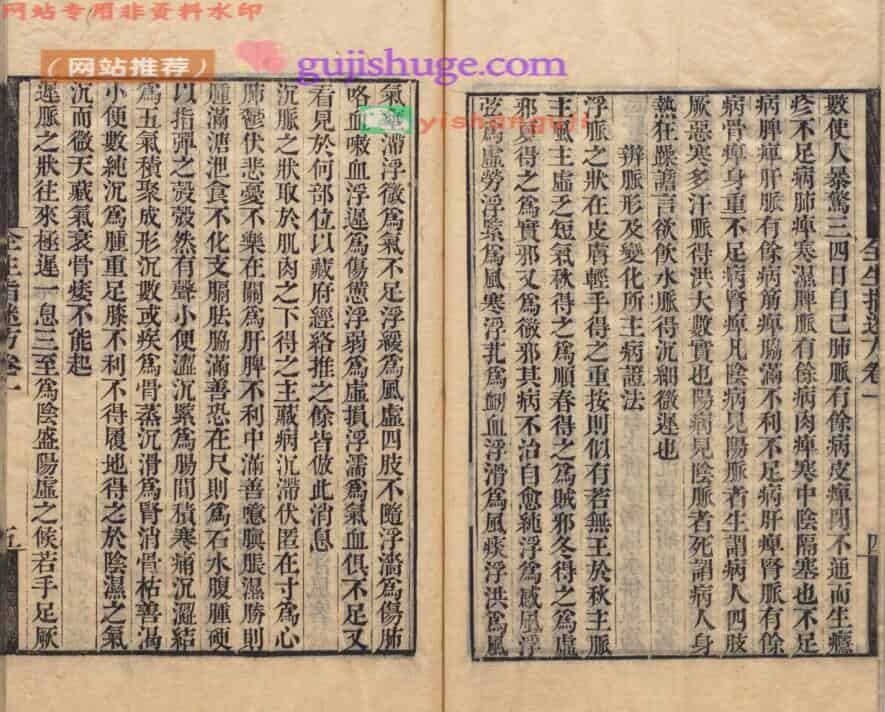 网站专用非资料水印
（网站推荐）
gujishuge.com
yishanguji
數使人暴驚三四日自已肺脈有餘病皮痺閉不通而生癮
疹不足病肺痺寒濕脾脈有餘病肉痺寒中陰隔塞也不足
病脾痺肝脈有餘病筋痺脇滿不利不足病肝痺腎脈有餘
病骨痺身重不足病腎痺凡陰病見陽脈者生謂病人四肢
厥惡寒多汗脈得洪大數實也陽病見陰脈者死謂病人身
熱狂躁譫言欲飲水脈得沉細微遲也
辨脈形及變化所主病證法
浮脈之狀在皮膚輕手得之重按則似有若無王於秋主脈
主風主虛乏短氣秋得之為順春得之為賊邪冬得之為虛
邪夏得之為實邪又為微邪其病不治自愈純浮為感風浮
弦為虛勞浮緊為風寒浮芤為衂血浮滑為風痰浮洪為風
全生指迷方卷一
四
氣壅滯浮微為氣不足浮緩為風虛四肢不隨浮濇為傷肺
咯血嗽血浮遲為傷憊浮弱為虛損浮濡為氣血俱不足又
看見於何部位以藏府經絡推之餘皆倣此消息
沉脈之狀取於肌肉之下得之主藏病沉滯伏匿在寸為心
肺鬱伏悲憂不樂在關為肝脾不利中滿善噫臏脹濕勝則
腫滿溏泄食不化支膈胠脇滿善恐在尺則為石水腹腫硬
以指彈之殼殼然有聲小便澀沉緊為腸間積寒痛沉澀結
為五氣積聚成形沉數或疾為骨蒸沉滑為腎消骨枯善渴
小便數純沉為腫重足膝不利不得履地得之於陰濕之氣
沉而微天藏氣衰骨痿不能起
遲脈之狀往來極遲一息三至為陰盛陽虛之候若手足厥
全生指迷方卷一
五